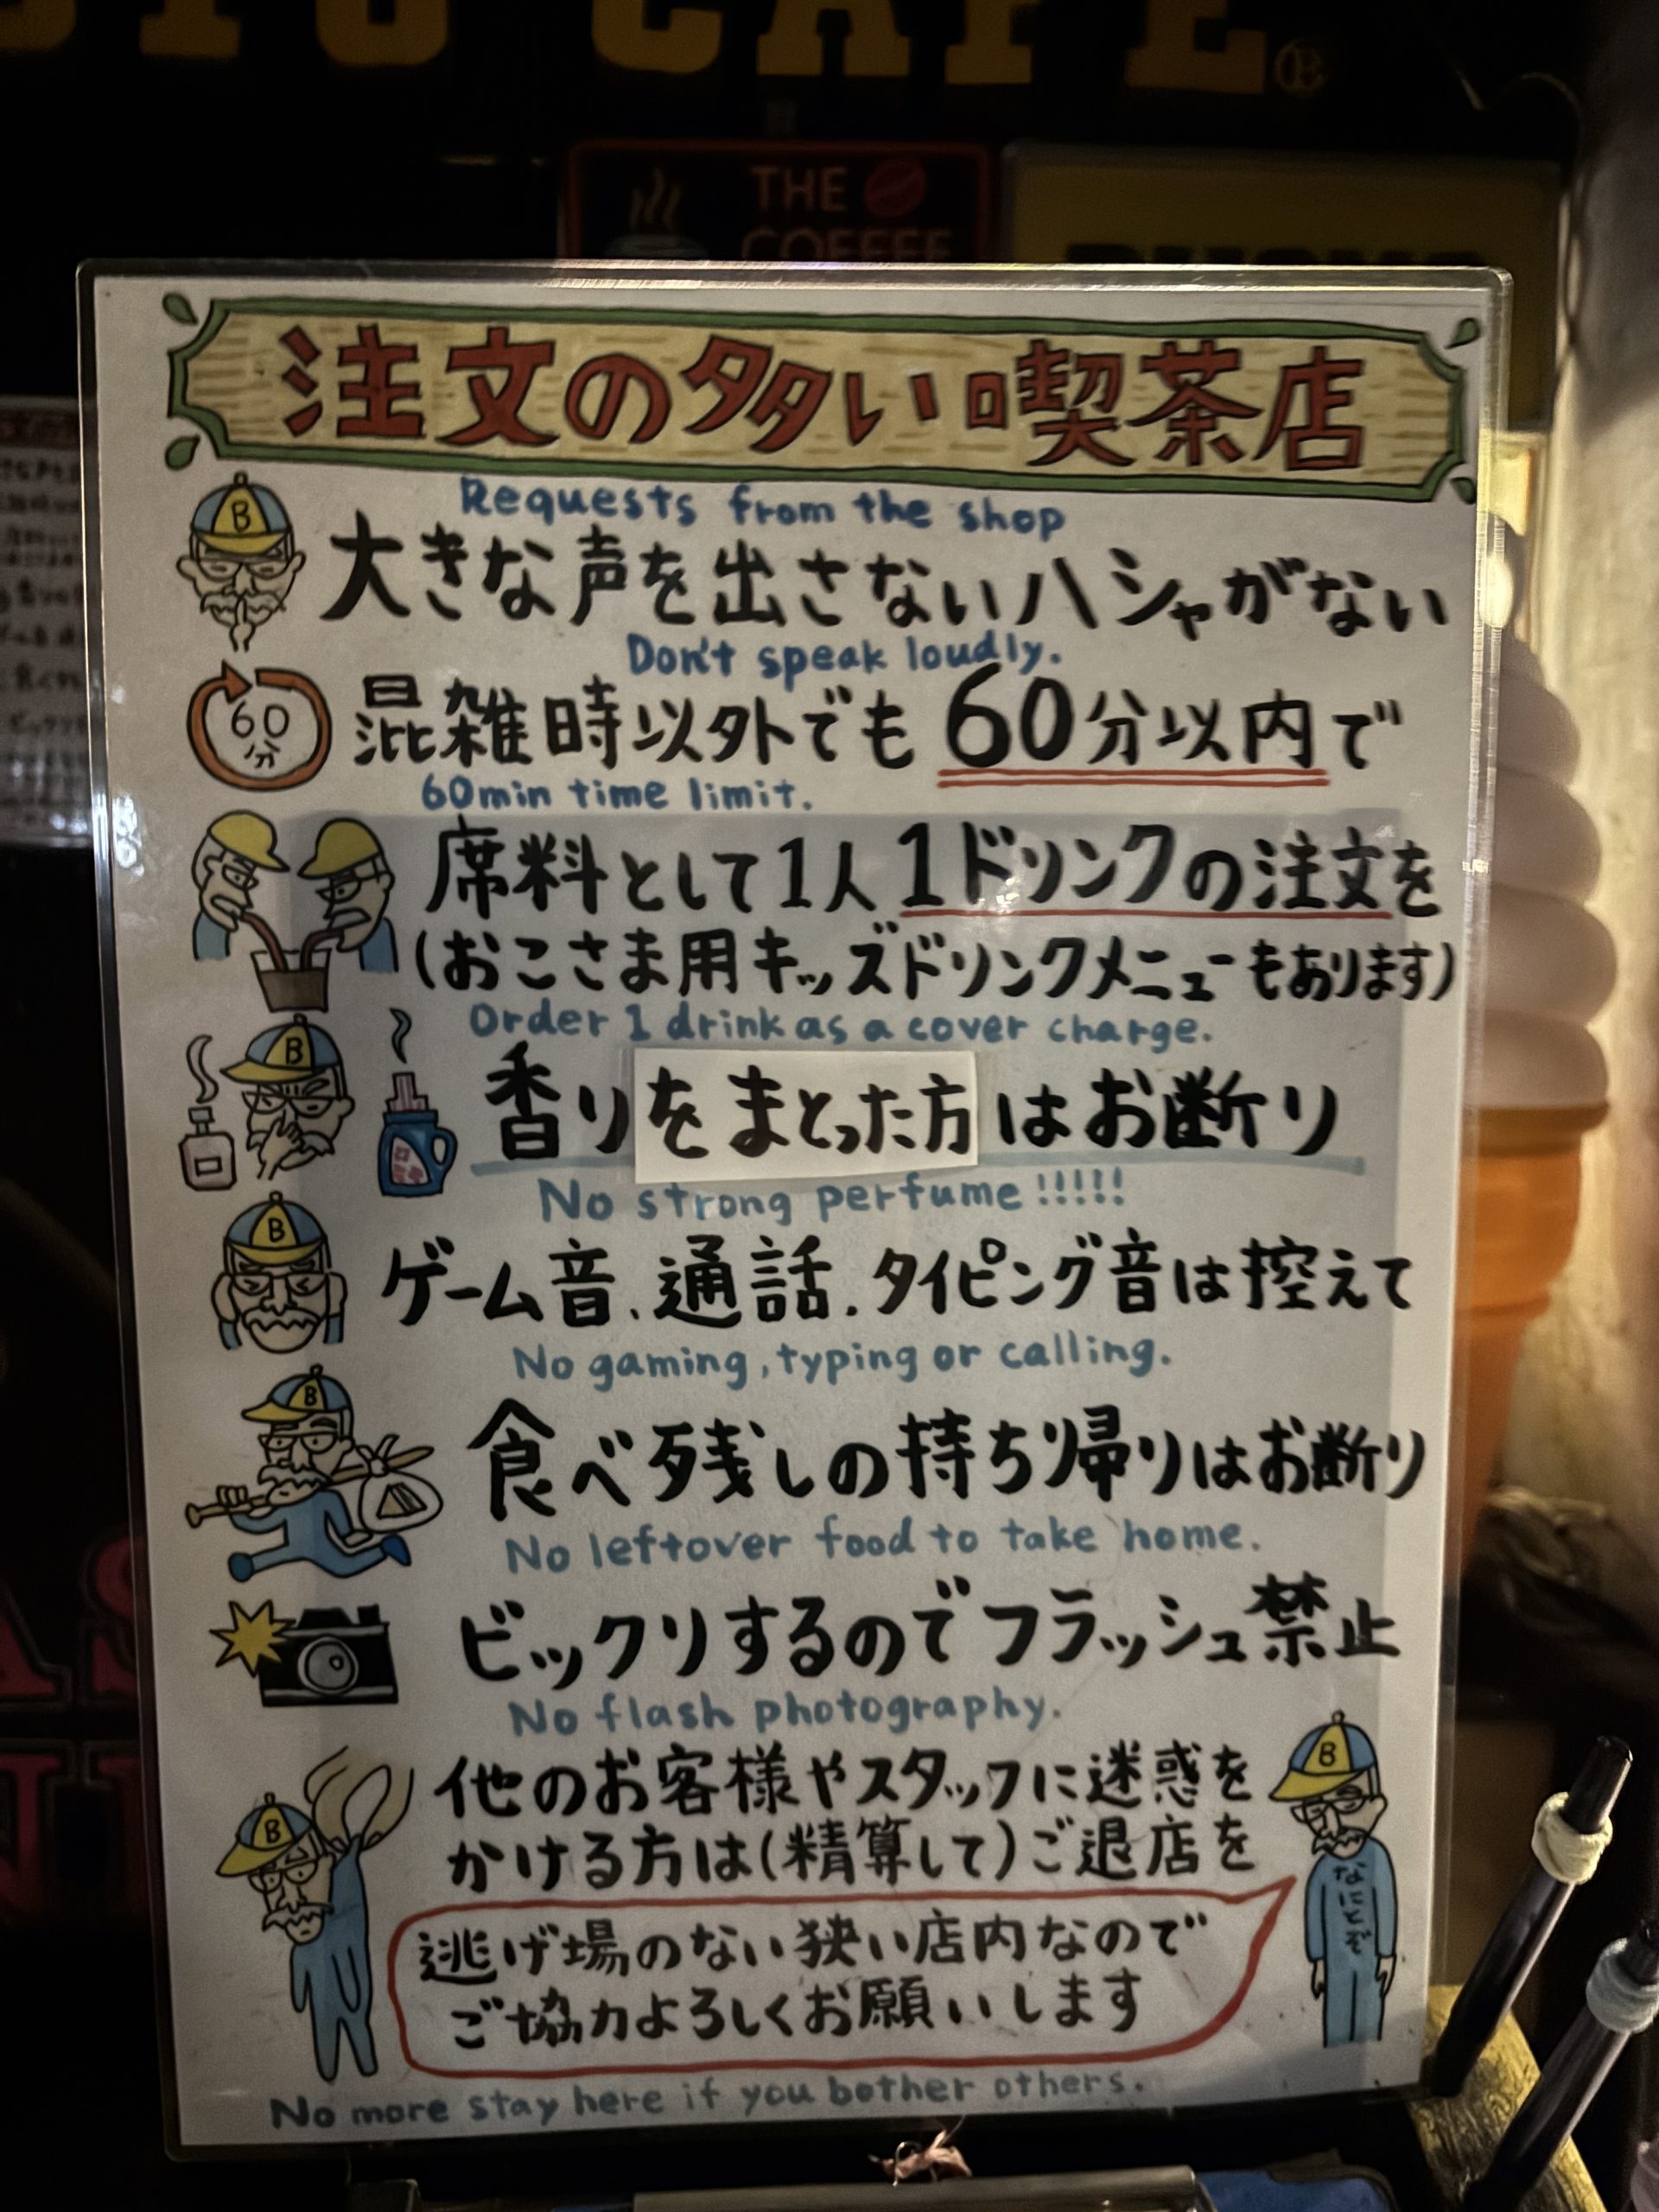 CAFE
THE
COFFEE
注文の多い喫茶店
Requests from the shop
B
大きな声を出さないハシャがない
Don't speak loudly.
60
分
混雑時以外でも60分以内で
60min time limit.
席料として1人1ドリンクの注文を
(おこさま用キッズドリンクメニューもあります)
Order 1 drink as a cover charge.
B
香りをまとった方はお断り
No strong perfume!!!!!
B
ゲーム音、通話、タイピング音は控えて
No gaming, typing or calling.
B
食べ残しの持ち帰りはお断り
No leftover food to take home.
ビックリするのでフラッシュ禁止
No flash photography.
B
他のお客様やスタッフに迷惑を
かける方は(精算して)ご退店を
B
なにとぞ
逃げ場のない狭い店内なので
ご協力よろしくお願いします
No more stay here if you bother others.